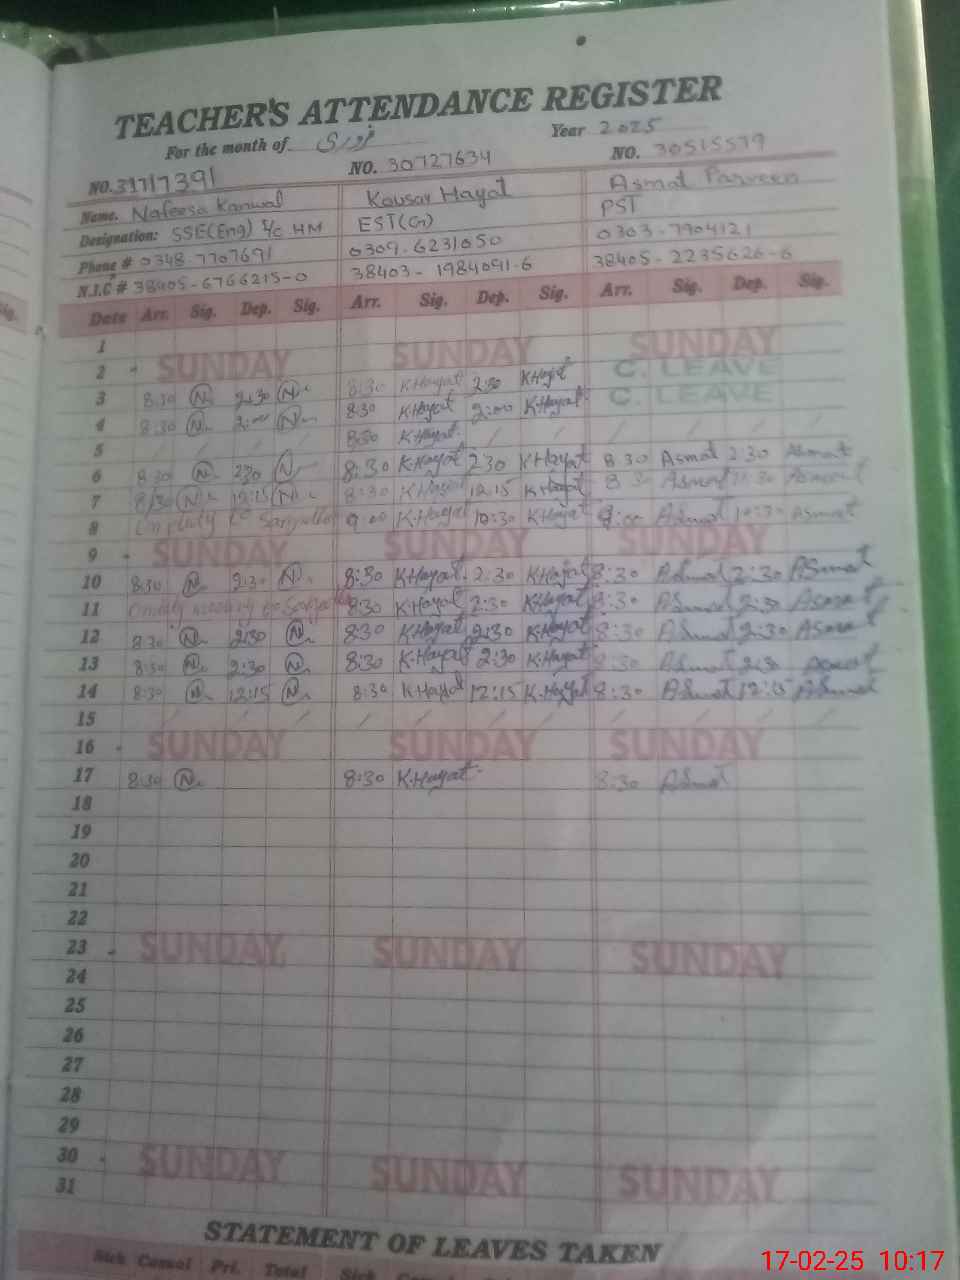 TEACHER'S ATTENDANCE REGISTER
For the month of فروری Year 2025
NO. 31717391 NO. 30727634 NO. 30515579
Name. Nafeesa Kanwal Kousar Hayat Asmat Parveen
Designation: SSE(Eng) I/C HM EST(G) PST
Phone # 0348-7707691 0309-6231050 0303-7904121
N.I.C # 38405-6766215-0 38403-1984091-6 38405-2235626-6
Date Arr. Sig. Dep. Sig. Arr. Sig. Dep. Sig. Arr. Sig. Dep. Sig.
1
2 SUNDAY SUNDAY SUNDAY
3 8:30 N 2:30 N 8:30 K.Hayat 2:30 K.Hayat C. LEAVE
4 8:30 N 2:00 N 8:30 K.Hayat 2:00 K.Hayat C. LEAVE
5 8:30 K.Hayat
6 8:30 N 2:30 N 8:30 K.Hayat 2:30 K.Hayat 8:30 Asmat 2:30 Asmat
7 8:30 N 12:15 N 8:30 K.Hayat 12:15 K.Hayat 8:30 Asmat Asmat
8 On duty to 9:00 K.Hayat 10:30 K.Hayat 9:00 Asmat 10:30 Asmat
9 SUNDAY SUNDAY SUNDAY
10 8:30 N 2:30 N 8:30 K.Hayat 2:30 K.Hayat 8:30 Asmat 2:30 Asmat
11 meeting 8:30 K.Hayat 2:30 K.Hayat 8:30 Asmat 2:30 Asmat
12 8:30 N 2:30 N 8:30 K.Hayat 2:30 K.Hayat 8:30 Asmat 2:30 Asmat
13 8:30 N 2:30 N 8:30 K.Hayat 2:30 K.Hayat 8:30 Asmat 2:30 Asmat
14 8:30 N 12:15 N 8:30 K.Hayat 12:15 K.Hayat 8:30 Asmat 12:15 Asmat
15
16 SUNDAY SUNDAY SUNDAY
17 8:30 N 8:30 K.Hayat 8:30 Asmat
18
19
20
21
22
23 SUNDAY SUNDAY SUNDAY
24
25
26
27
28
29
30 SUNDAY SUNDAY SUNDAY
31
STATEMENT OF LEAVES TAKEN
Sick Casual Pri. Total Sick
17-02-25 10:17